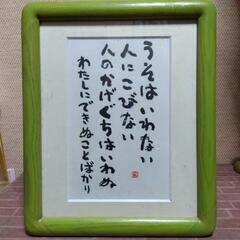 うそはいわない
人にこびない
人のかげぐちはいわぬ
わたしにできぬことばかり